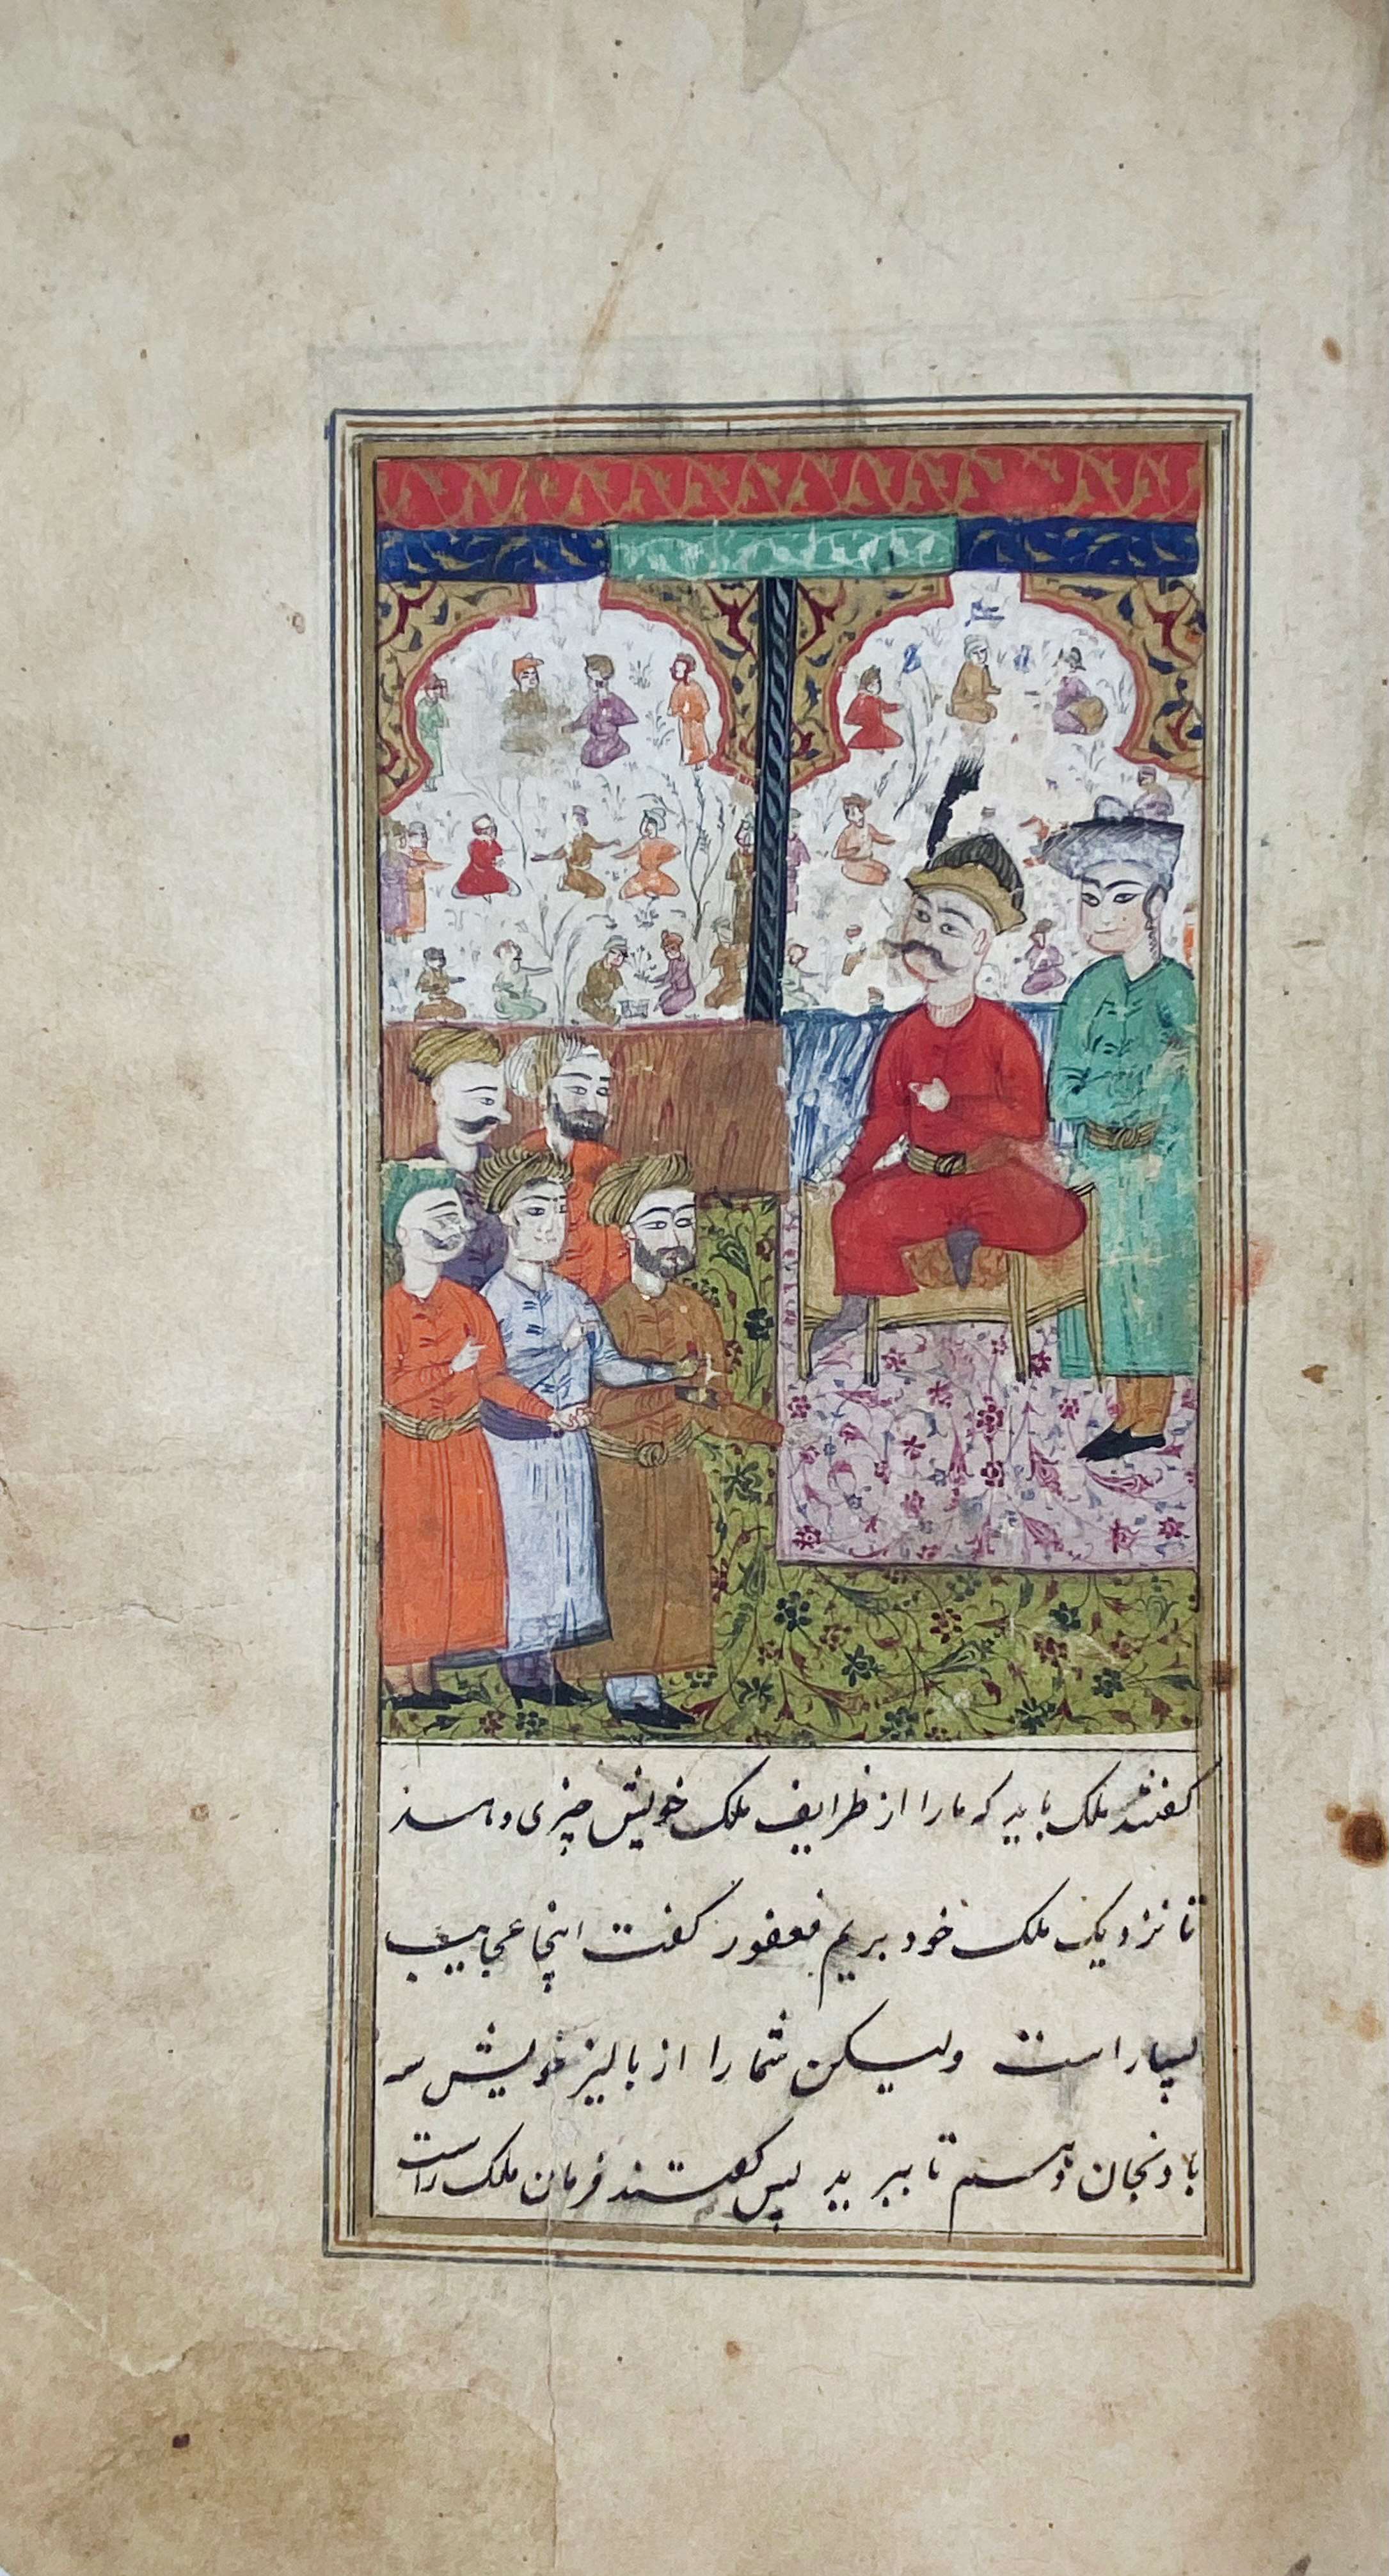 گفتند ملک باید که ما را از ظرایف ملک خویش چیزی دهد
تا نزدیک ملک خود بریم فغفور گفت اینجا عجایب
بسیار است ولیکن شما را از پالیز خویش سه
بادنجان دهم تا ببرید پس گفتند فرمان ملک راست